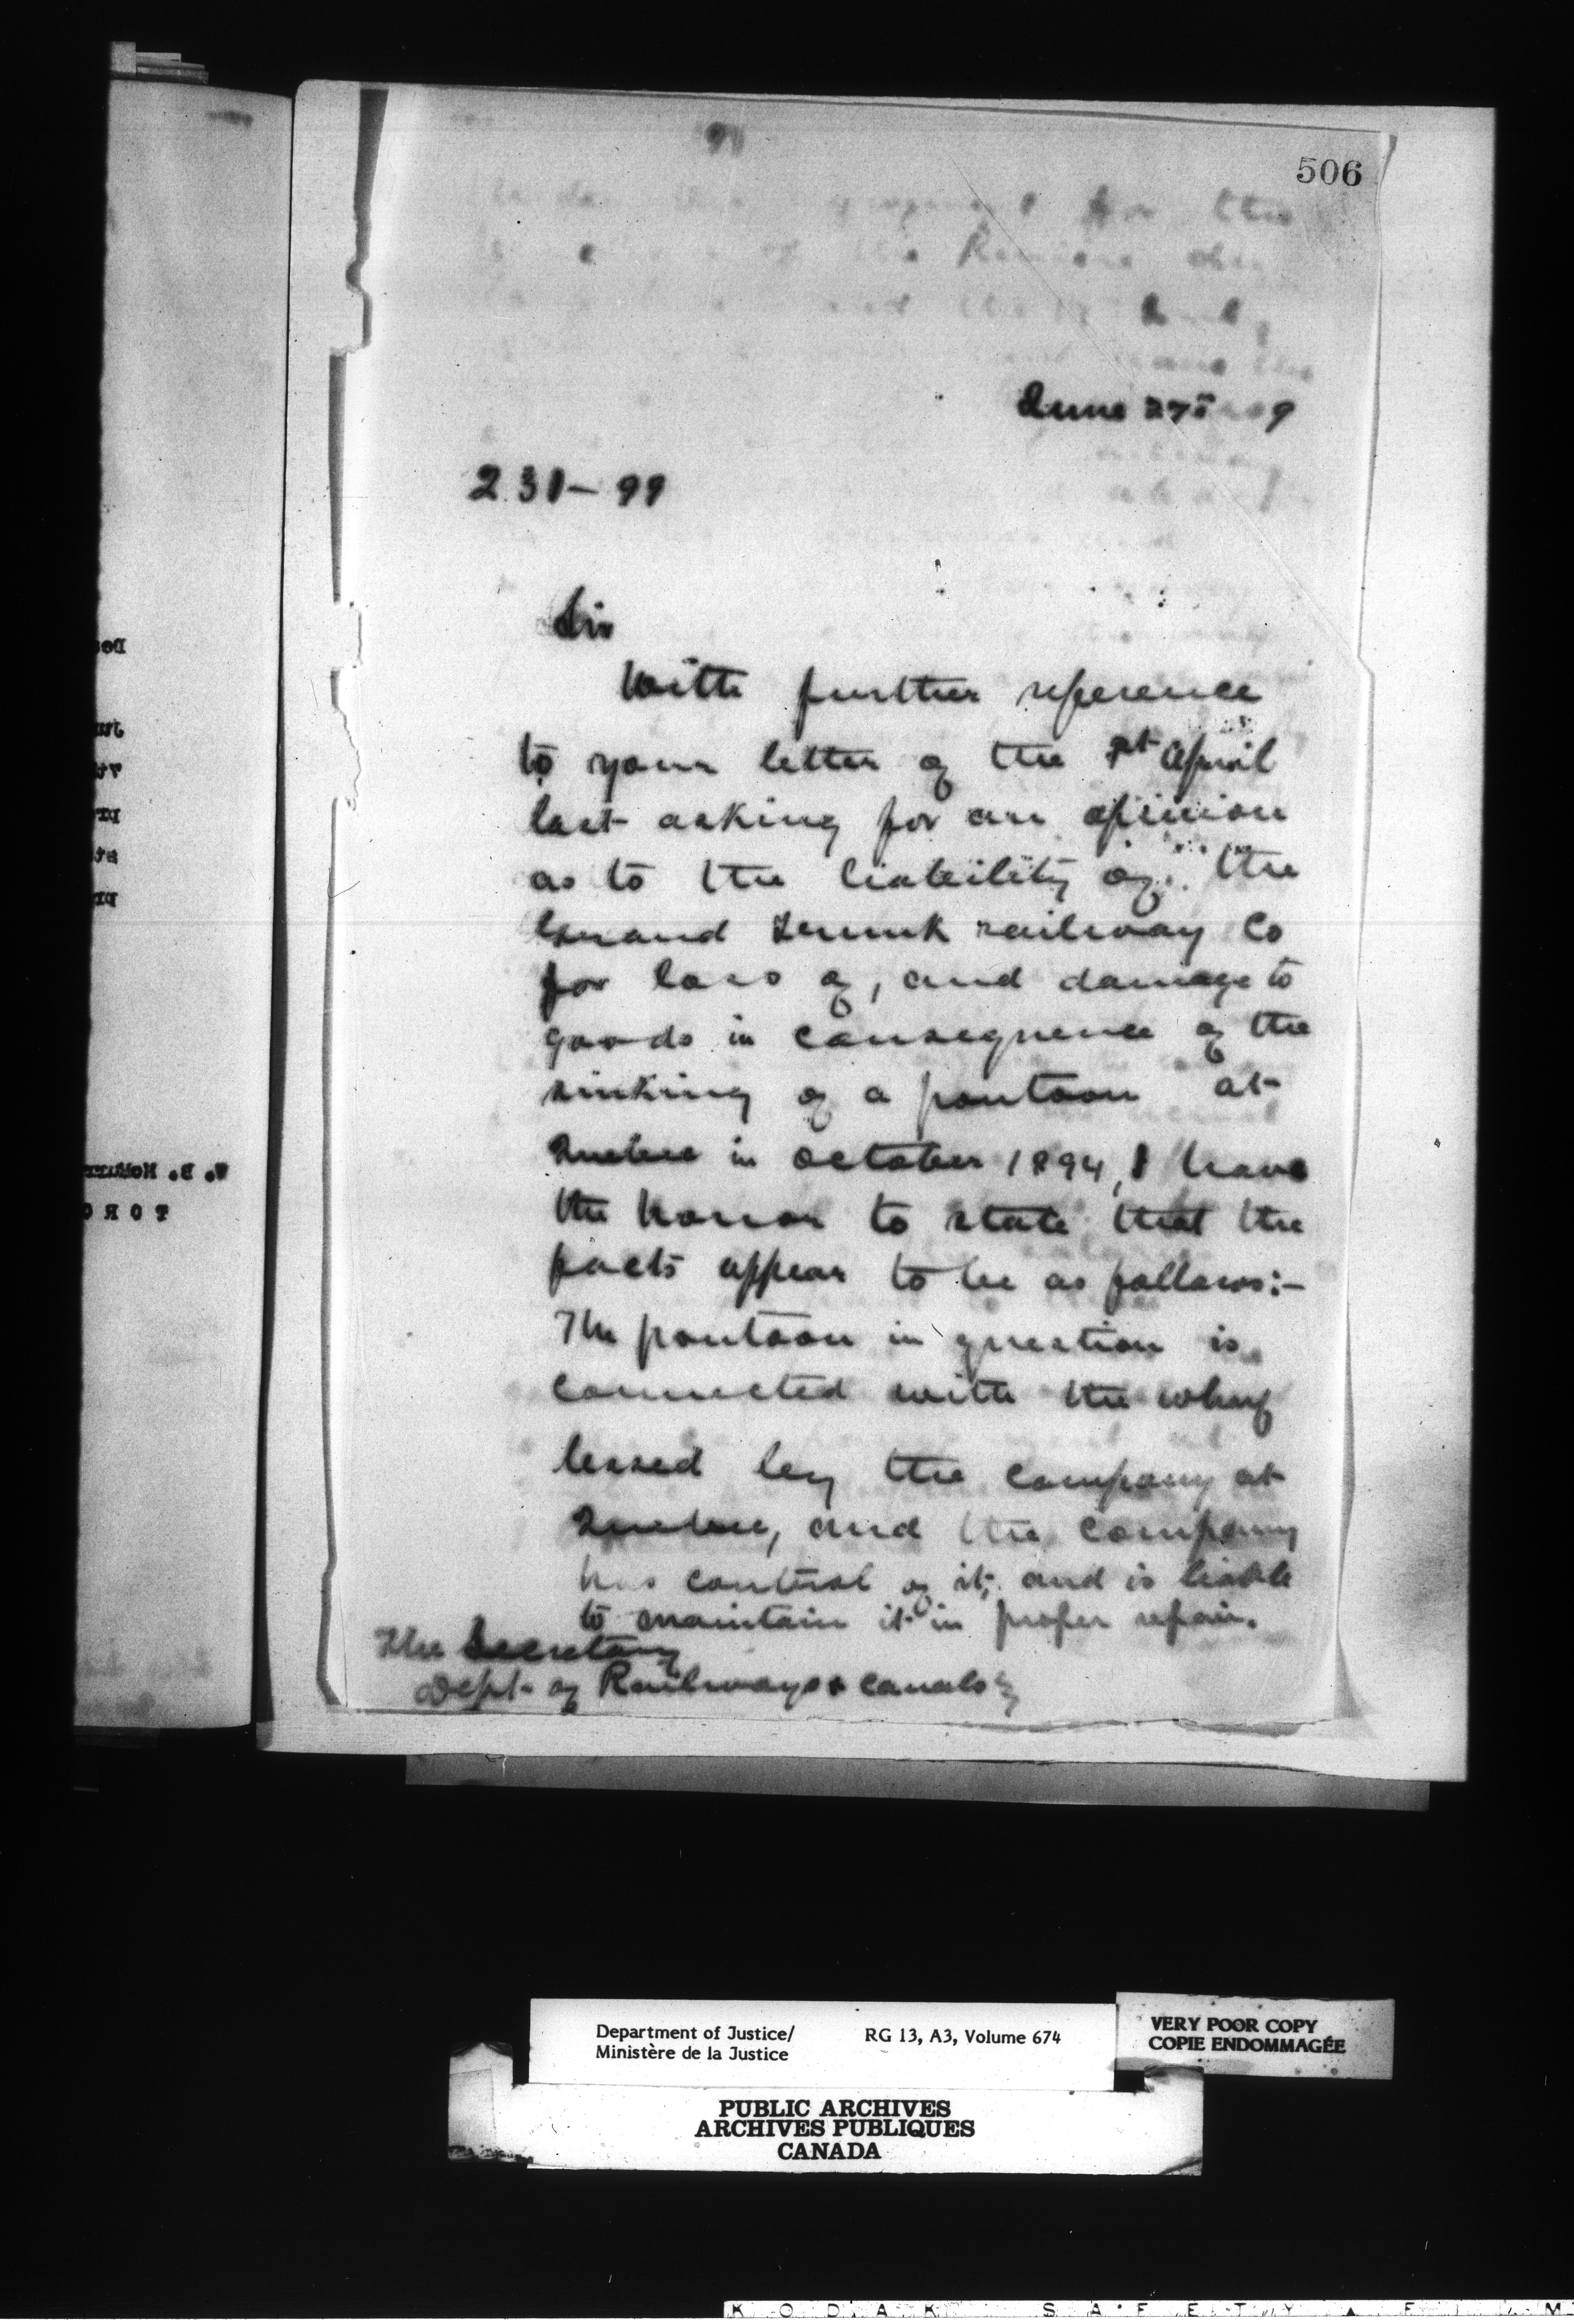 506
June 27
231-99
Sir
With further reference
to your letter of the April
last asking for an opinion
as to the liability of the
Grand Trunk railway Co
for loss of, and damage to
goods in consequence of the
sinking of a pontoon at
Quebec in October 1894, I have
the honor to state that the
facts appear to be as follows:-
The pontoon in question is
connected with the wharf
leased by the Company at
Quebec, and the Company
has control of it, and is liable
to maintain it in proper repair.
The Secretary
Dept. of Railways & Canals
Department of Justice/
Ministère de la Justice
RG 13, A3, Volume 674
VERY POOR COPY
COPIE ENDOMMAGÉE
PUBLIC ARCHIVES
ARCHIVES PUBLIQUES
CANADA
KODAK SAFETY